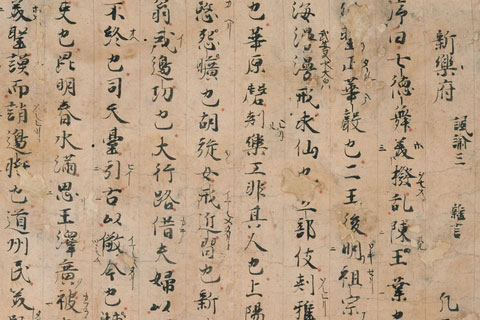 新樂府 諷諭三 雜言 凡
序曰七德舞美撥乱陳王業也
聖正華聲也二王後明祖宗
海漫漫戒求仙也立部伎刺雅
也華原磬刺樂工非其人也上陽
愍怨曠也胡旋女戒近習也新
翁戒邊功也大行路借夫婦以
不終也司天臺引古以儆今也捕
吏也昆明春水滿思王澤廣被
美聖謨而誚邊將也道州民美